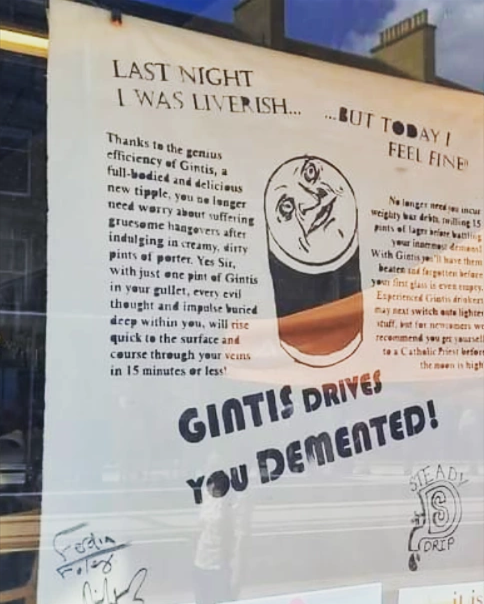 LAST NIGHT
I WAS LIVERISH...
...BUT TODAY I
FEEL FINE!!
Thanks to the genius
efficiency of Gintis, a
full-bodied and delicious
new tipple, you no longer
need worry about suffering
gruesome hangovers after
indulging in creamy, dirty
pints of porter. Yes Sir,
with just one pint of Gintis
in your gullet, every evil
thought and impulse buried
deep within you, will rise
quick to the surface and
course through your veins
in 15 minutes or less!
No longer need you incur
weighty bar debts, swilling 15
pints of lager before battling
your innermost demons!
With Gintis you'll have them
beaten and forgotten before
your first glass is even empty.
Experienced Gintis drinkers
may next switch onto lighter
stuff, but for newcomers we
recommend you get yourself
to a Catholic Priest before
the moon is high
GINTIS DRIVES
YOU DEMENTED!
STEADY
D
DRIP
Feidin
Foley
it is